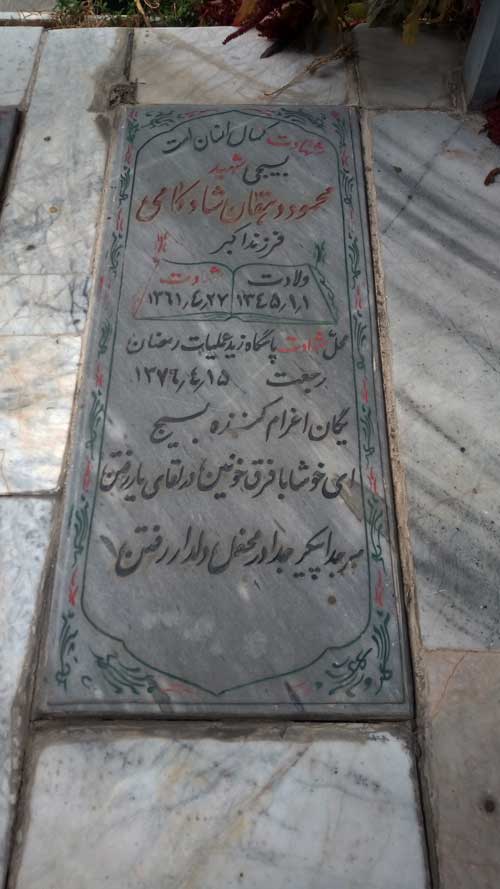 شهادت کمال انسان است
بسیجی شهید
محمود دهقان شادکامی
فرزند اکبر
ولادت شهادت
۱۳۴۵٫۱٫۱ ۱۳۶۱٫۴٫۲۷
محل شهادت پاسگاه زید عملیات رمضان
رجعت ۱۳۷۶٫۴٫۱۵
یگان اعزام کننده بسیج
ای خوشا با فرق خونین در لقای یار رفتن
سر جدا پیکر جدا در محفل دلدار رفتن